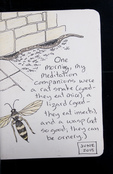 One
morning, my
meditation
companions were
a rat snake (good-
they eat mice), a
lizard (good-
they eat insects),
and a wasp (not
so good, they can
be ornery.)